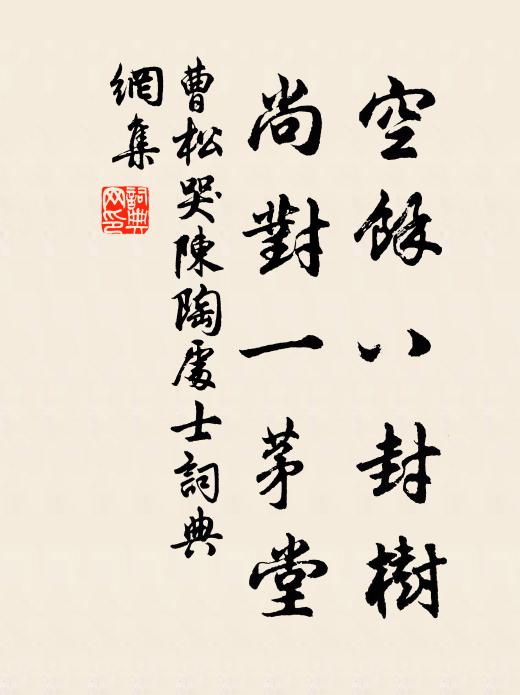 空餘八封樹
尚對一茅堂
曹松哭陳陶處士詞典
網集
詞典網印